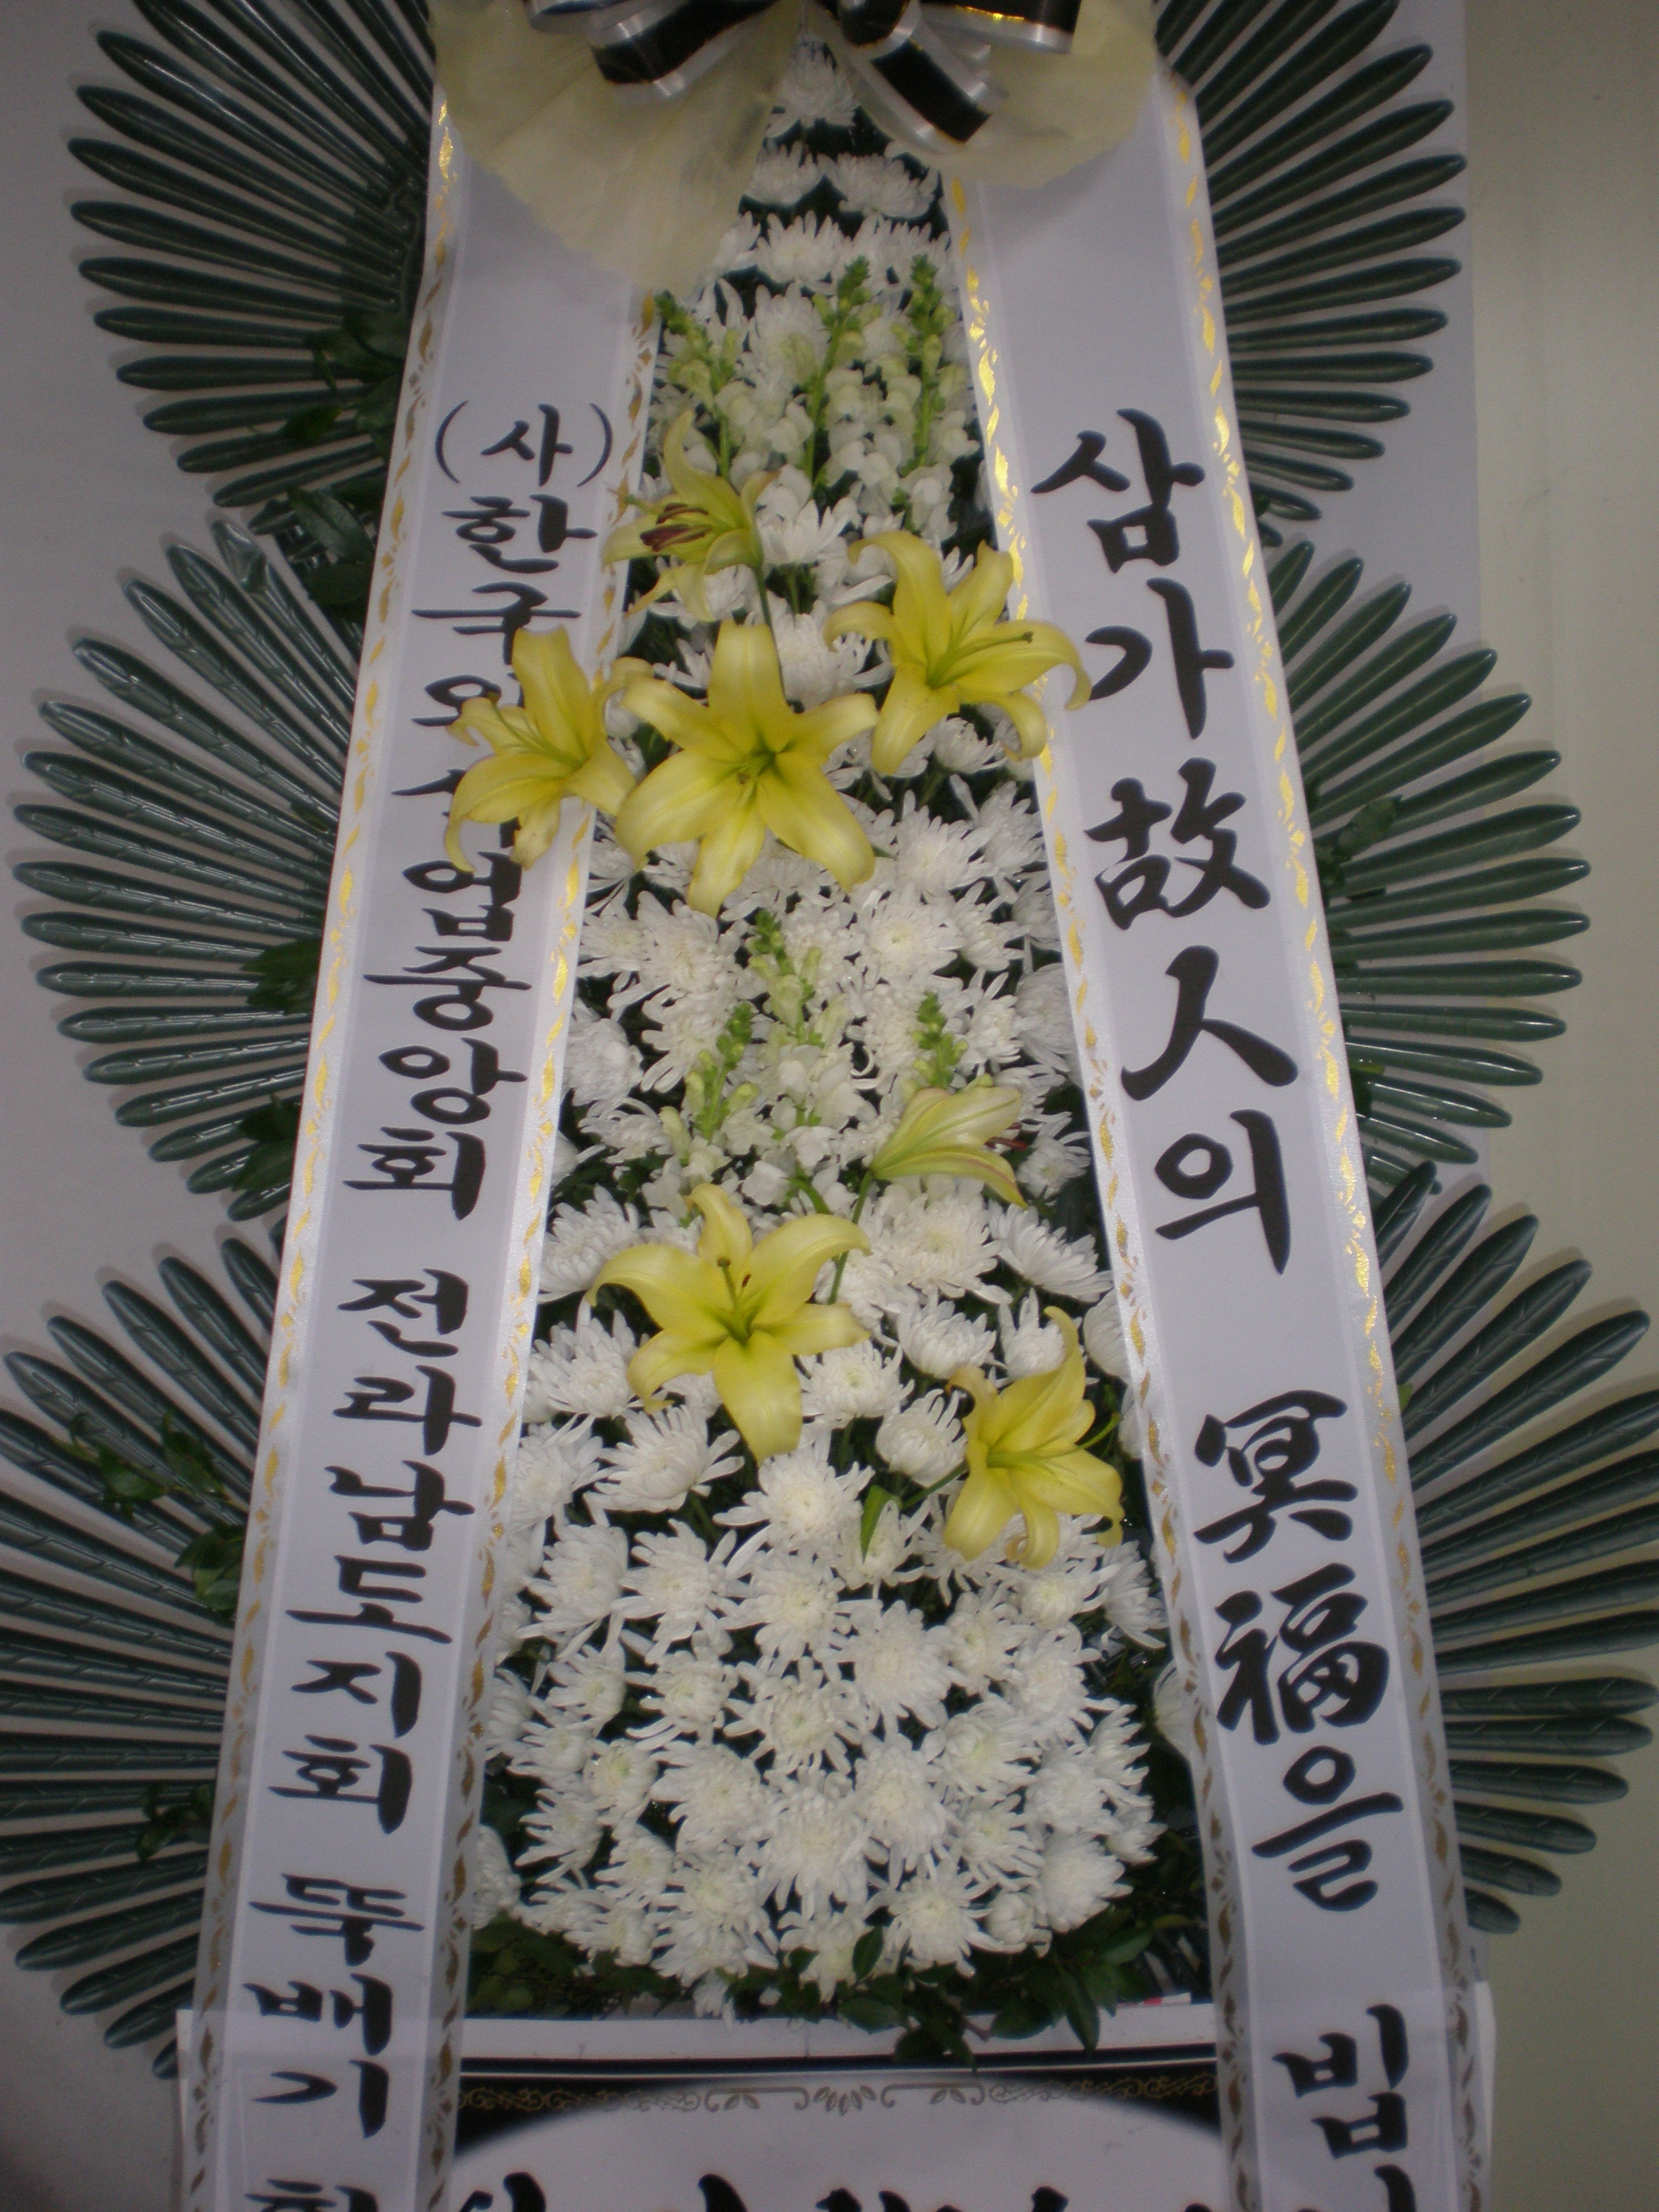 삼가 故人의 冥福을 빕
(사)한국외식업중앙회 전라남도지회 뚝배기